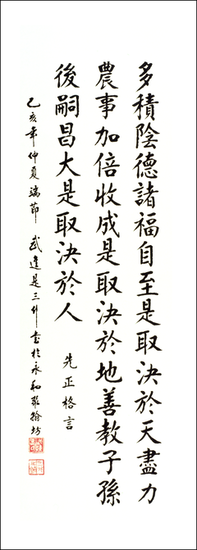 多積陰德諸福自至是取決於天盡力
農事加倍收成是取決於地善教子孫
後嗣昌大是取決於人
先正格言
乙亥年仲夏端節 武達是三升書於永和